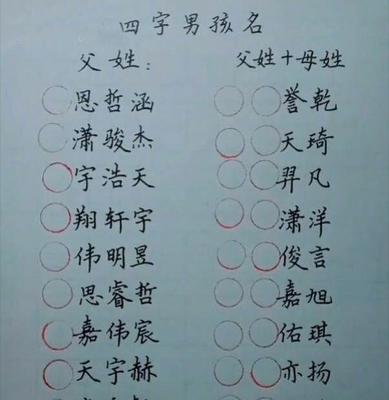 四字男孩名
父姓: 父姓+母姓
恩哲涵 誉乾
潇骏杰 天琦
宇浩天 羿凡
翔轩宇 潇洋
伟明昱 俊言
思睿哲 嘉旭
嘉伟宸 佑琪
天宇赫 亦扬